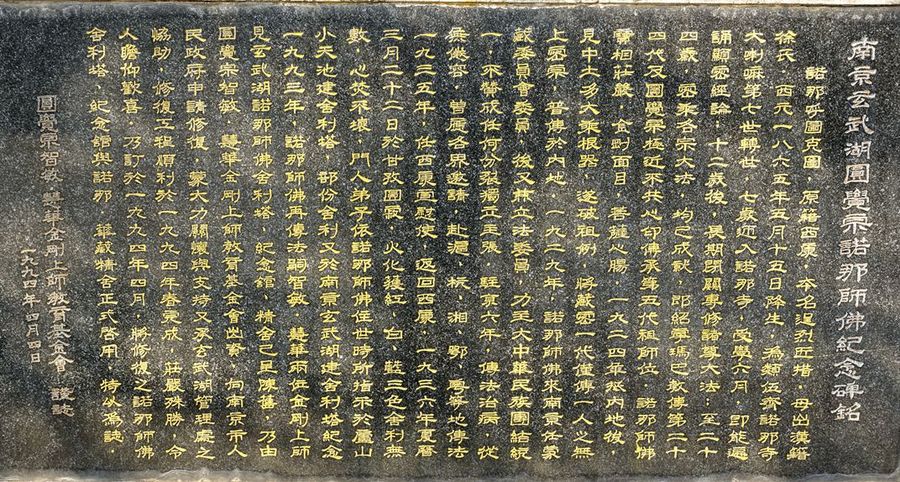 南京玄武湖圓覺宗諾那師佛紀念碑銘
諾那呼圖克圖，原籍西康，本名逞烈匠措，母出漢籍
徐氏，西元一八六五年五月十五日降生，為類伍齊諾那寺
大喇嘛第七世轉世，七歲迎入諾那寺，受學六月，即能遍
誦顯密經論，十二歲後，長期閉關專修諸尊大法；至二十
四歲，密乘各宗大法，均已成就，即紹蓮瑪巴教傳第二十
四代及圓覺宗極近不共心印傳承第五代祖師位。諾那師佛
體相莊嚴，金剛面目，菩薩心腸，一九二四年抵內地後，
見中土多大乘根器，遂破祖例，將嚴密一代僅傳一人之無
上密宗，普傳於內地。一九二九年，諾那師佛來南京任蒙
藏委員會委員，後又兼立法委員，力主大中華民族團結統
一，不贊成任何分裂獨立主張，駐京六年，傳法治病，從
無倦容，曾應各界邀請，赴滬、杭、湘、鄂、粵等地傳法
一九三五年，任西康宣慰使，返回西康，一九三六年夏曆
三月二十二日於甘孜圓寂，火化獲紅、白、藍三色舍利無
數，心英不壞，門人弟子依諾那師佛住世時所指示於廬山
小天池建舍利塔，部份舍利又於南京玄武湖建舍利塔紀念
一九九三年，諾那師佛再傳法嗣智敏、慧華兩位金剛上師
見玄武湖諾那師佛舍利塔、紀念館、精舍已呈陳舊，乃由
圓覺宗智敏、慧華金剛上師教育基金會出資，向南京市人
民政府申請修復，蒙大力關懷與支持又承玄武湖管理處之
協助，修復工程順利於一九九四年春竟成，莊嚴殊勝，令
人瞻仰歡喜，乃訂於一九九四年四月，將修復之諾那師佛
舍利塔、紀念館與諾那、華藏精舍正式啓用，特以為誌。
圓覺宗智敏、慧華金剛上師教育基金會　謹誌
一九九四年四月四日